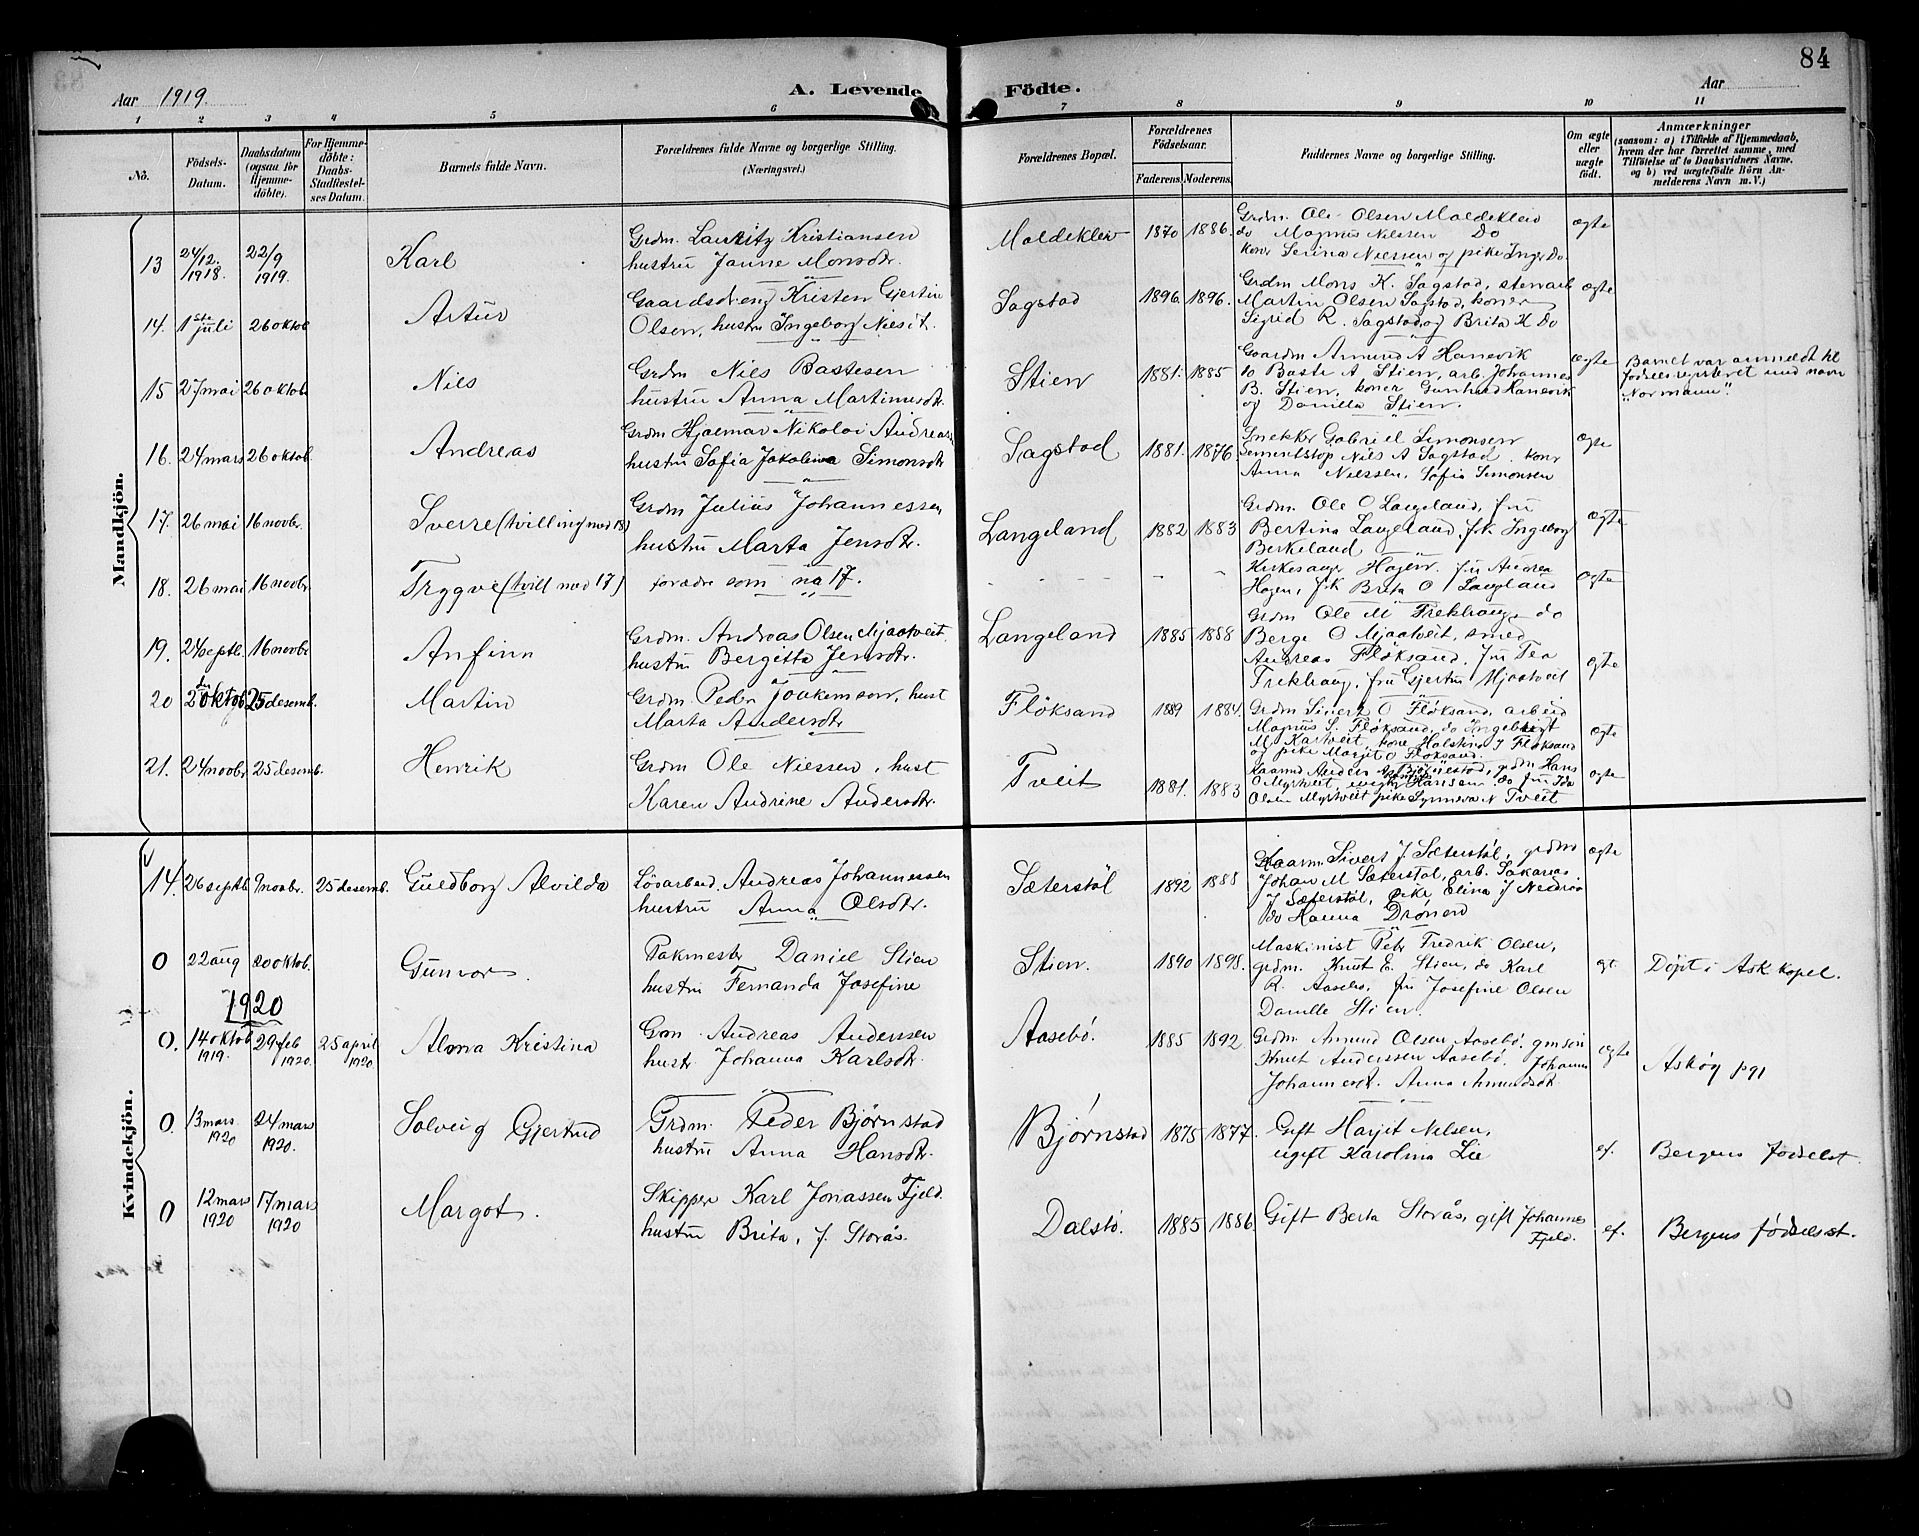 84
Aar 1919.
A. Levende Födte.
Aar
1 2 3 4 5 6 7 8 9 10 11
No.
Födsels-Datum.
Daabsdatum (ogsaa for Hjemmedöbte).
For Hjemmedöbte: Daabs-Stadfæstelses Datum.
Barnets fulde Navn.
Forældrenes fulde Navne og borgerlige Stilling. (Næringsvei.)
Forældrenes Bopæl.
Forældrenes Födselsaar.
Faderens. Moderens.
Faddernes Navne og borgerlige Stilling.
Om ægte eller uægte födt.
Anmærkninger
(saasom: a) i Tilfælde af Hjemmedaab, hvem der har forrettet samme, med Tilföielse af to Daabsvidners Navne. og b) ved uægtefödte Börn Anmelderens Navn m. V.)
Mandkjön.
13 24/12. 1918. 22/9 1919. Karl
Grdm. Lauritz Kristiansen
hustru Janne Monsdtr.
Moldeklev 1870 1886.
Grdm. Ole Olsen Moldeklev
do Magnus Nilssen Do
kone Serina Nilssen og pike Inger Do.
ægte
14. 1ste juli 26 oktob Artur
Gaardsdreng Kristen Gjertin
Olsen, hustru Ingeborg Nilsdt.
Sagstad 1896. 1896.
Grdm Mons K. Sagstad, stenarb
Martin Olsen Sagstad, koner
Sigrid R. Sagstad og Brita K Do
ægte
15 27 mai 26 oktob Nils
Grdm Nils Bastesen
hustru Anna Martinusdtr.
Stien 1881. 1885
Gaardm Amund A Hanevik
do Baste A Stien, arb. Johannes
B. Stien, koner Gunhild Hanevik
og Danilla Stien.
ægte
Barnet var anmeldt til
födselsregisteret med navn
"Normann".
16. 24 mars 26 oktob. Andreas
Grdm Hjalmar Nikolai Andreas
hustru Sofia Jakobina Simonsdtr
Sagstad 1881. 1876
Snekker Gabriel Simonsen
sementstöp Nils A Sagstad. koner
Anna Nilssen, Sofia Simonsen
ægte
17. 26 mai 16 novbr. Sverre (tvilling med 18)
Grdm Julius Johannessen
hustru Marta Jensdtr.
Langeland 1882 1883
Grdm. Ole O Langeland, fru
Bertina Langeland, frk Ingeborg
Berkeland
ægte
18. 26 mai 16 novbr. Trygve (tvill med 17)
forædre som no 17.
- - - - -
Kirkesanger Hagen. fru Andrea
Hagen, frk Brita O Langeland
ægte
19. 24 septb. 16 novbr Anfinn
Grdm. Andreas Olsen Mjaatveit
hustru Bergitta Jensdtr.
Langeland 1885 1888
Grdm Ole M Trekhaug, do
Berge O Mjaatveit, smed
Andreas Flöksand, fru Tea
Trekhaug, fru Gjertru Mjaatveit
ægte
20 2den oktob. 25 desemb. Martin
Grdm. Peder Joakimsen, hust
Marta Andersdtr
Flöksand 1889 1884.
Grdm Sivert O Flöksand, arbeid
Magnus S. Flöksand, do Ingebrigt
M Kartveit, kone Halstina J Flöksand
og pike Marjit O Flöksand.
ægte
21. 24 novbr 25 desemb. Henrik
Grdm Ole Nilssen, hust
Karen Andrine Andersdtr.
Tveit 1881. 1883
Kaarm Anders A Björnestad, grdm Hans
O Myrtveit, Hansen. do fru Ida
Olsen Myrtveit pike Synneva N Tveit
ægte
Kvindekjön.
14. 26 septb 9 novbr. 25 desemb. Guldborg Alvilda
Lösarbeid. Andreas Johannessen
hustru Anna Olsdtr.
Sæterstöl 1892 1888
Kaarm. Sivert J Sæterstöl, grdm
Johan M Sæterstöl, arb. Sakarias
J Sæterstöl, pike Elina J Nedröe
do Hanna Drönen
ægte
0 22 aug 20 oktob. Gunvor.
Pakmester Daniel Stien
hustru Fernanda Josefine
Stien. 1890 1898.
Maskinist Petr Fredrik Olsen,
grdm. Knut E. Stien, do Karl
R. Aasebö, fru Josefine Olsen
Danille Stien.
egt.
Döpt i Ask kapel.
1920
0. 14 oktob 1919. 29 feb 1920. 25 april 1920. Alma Kristina
Gm. Andreas Anderssen
hust. Johanna Karlsdtr.
Aasebö. 1885 1892.
Grdm. Amund Olsen Aasebö, gmsön
Knut Anderssen Aasebö. Johanna
Johannesdt. Anna Amundsdt
ægte
Asköy p91
0. 13 mars 1920 24 mars 1920. Solveig Gjertrud
Grdm. Peder Bjørnstad
hustru Anna Hansdtr.
Bjørnstad 1875 1877.
Gift Marjit Nilsen,
ugift Karolina Lie
ef.
Bergens födselsst.
0 12 mars 1920 17 mars 1920 Margot.
Skipper Karl Jonassen Fjeld.
hustru Brita, f. Storås.
Dalstö. 1885 1886.
Gift Berta Storås, gift Johannes
Fjeld.
ef.
Bergens födselsst.